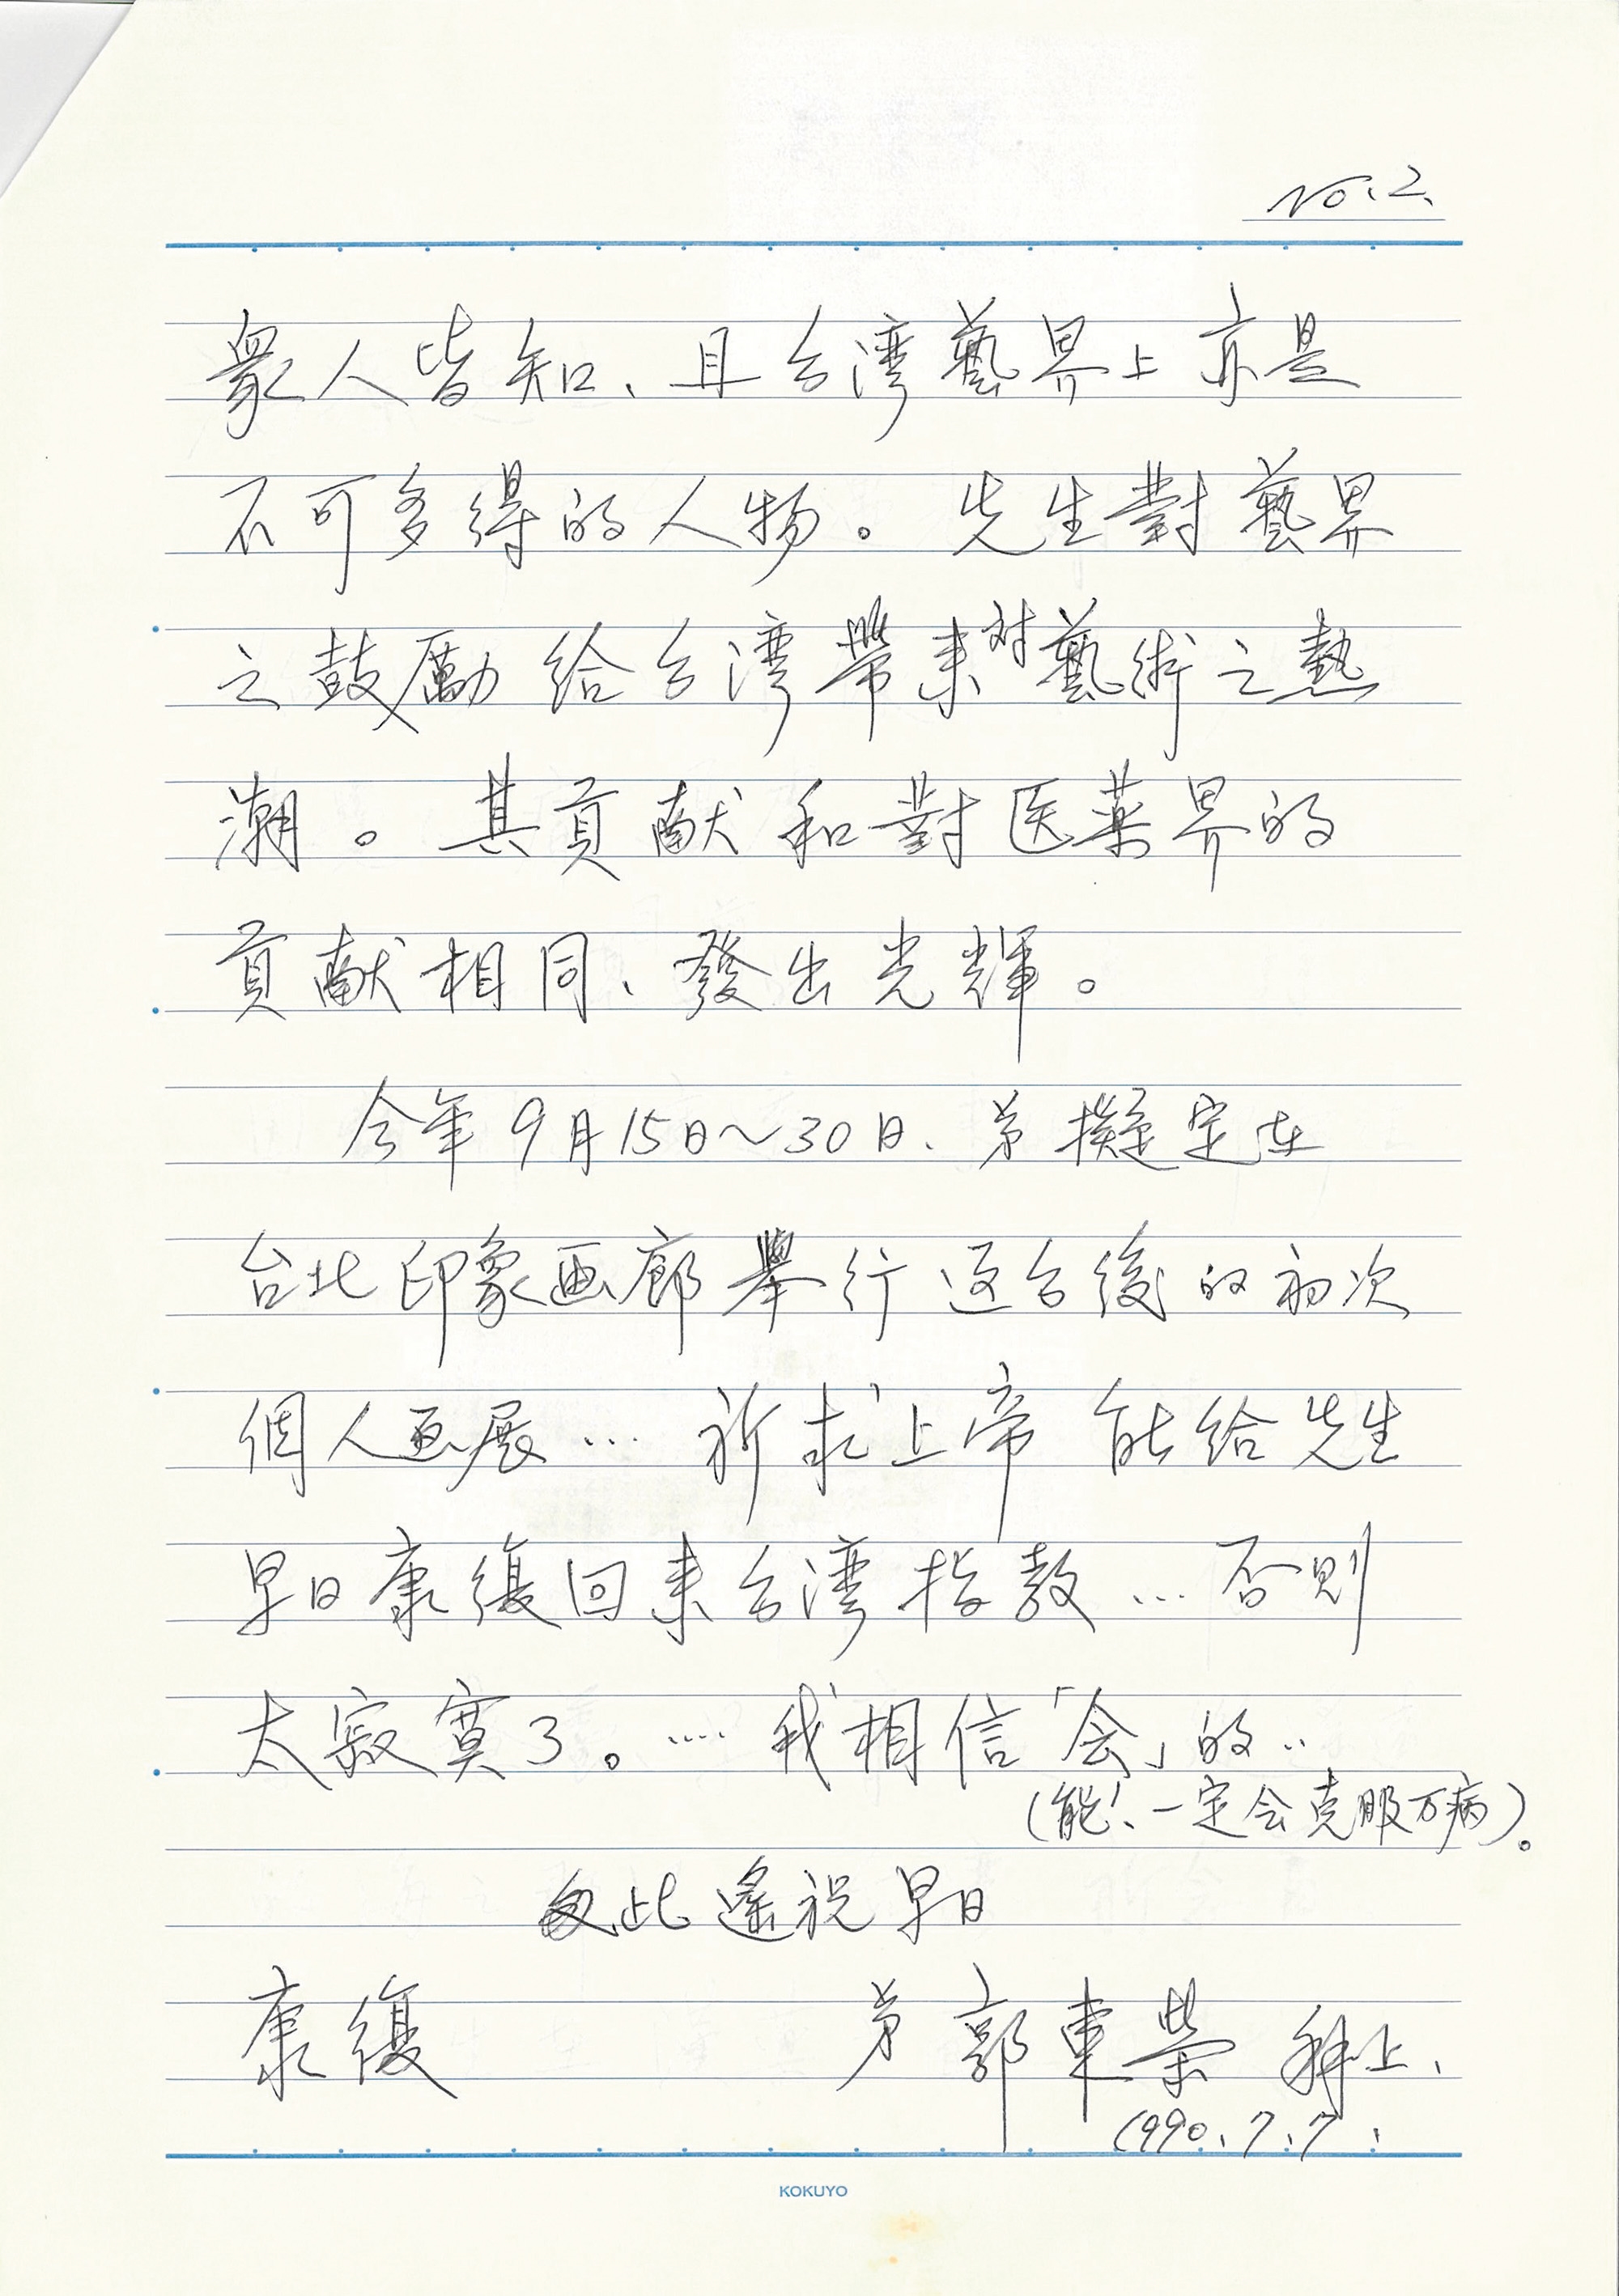 No.2.
眾人皆知、且台湾藝界上亦是
不可多得的人物。先生對藝界
之鼓勵給台湾帶来対藝術之熱
潮。其貢献和對医薬界的
貢献相同、發出光輝。
今年9月15日～30日、弟擬定在
台北印象画廊舉行返台後的初次
個人画展… 祈求上帝能給先生
早日康復回来台湾指教…否則
太寂寞了。…. 我相信「会」的..
(能!、一定会克服万病)。
此遙祝早日
康復 弟 郭東榮 拜上、
1990.7.7.
KOKUYO